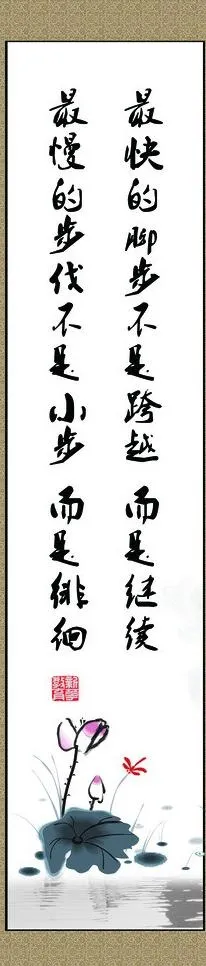 最快的脚步不是跨越 而是继续
最慢的步伐不是小步 而是徘徊